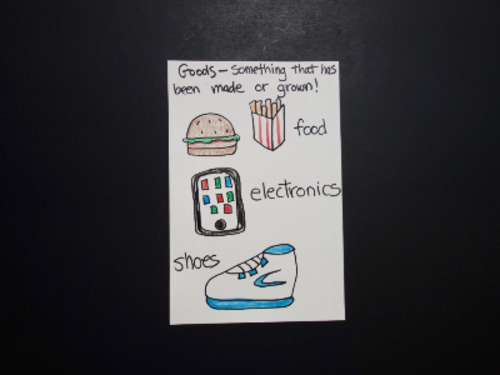 Goods – Something that has
been made or grown!
food
electronics
shoes